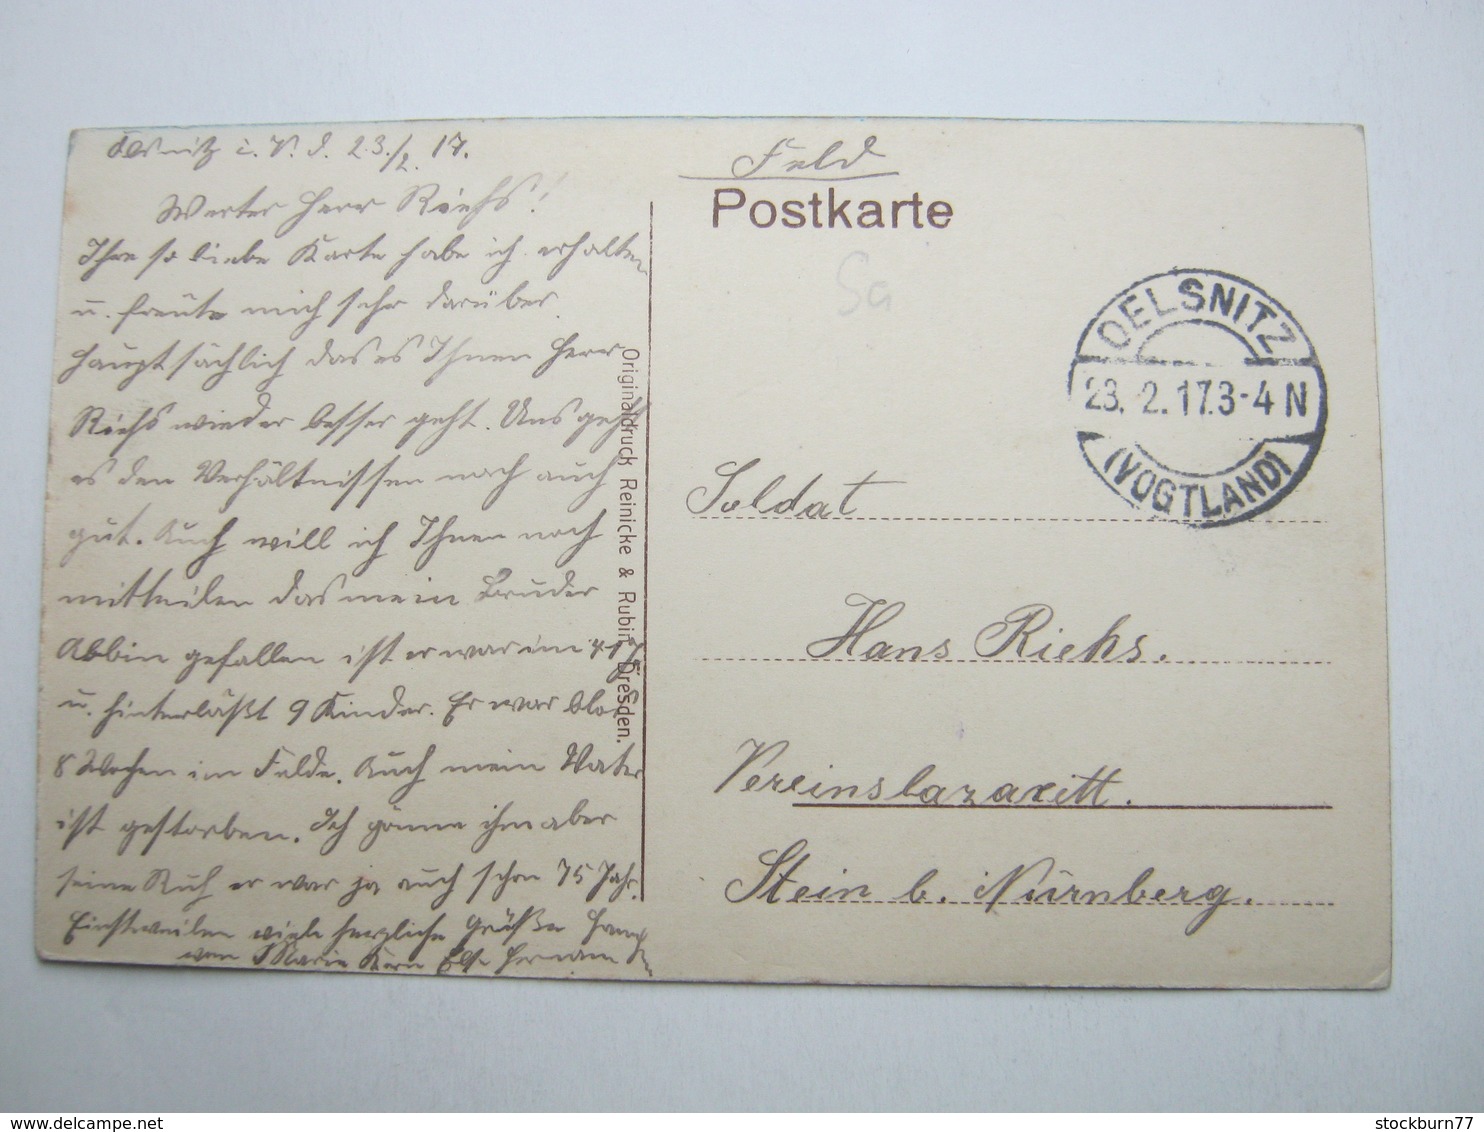 Ölsnitz i. V. d. 23./2. 17.
Werter Herr Riehs!
Ihre so liebe Karte habe ich erhalten
u. freute mich sehr darüber.
hauptsächlich das es Ihnen Herr
Riehs wieder besser geht. Uns geht
es den Verhältnissen nach auch
gut. Auch will ich Ihnen noch
mitteilen das mein Bruder
Albin gefallen ist er war im
u. hinterläßt 9 Kinder. Er war blos
8 Wochen im Felde. Auch mein Vater
ist gestorben. Ich gönne ihm aber
seine Ruh er war ja auch schon 75 Jahr.
Einstweilen viele herzliche Grüße
von Marie Kern Else Hermann
Originaldruck Reinicke & Rubin, Dresden.
Feld
Postkarte
Sa
OELSNITZ
23. 2. 17.3-4 N
(VOGTLAND)
Soldat
Hans Riehs.
Vereinslazarett.
Stein b. Nürnberg.
stockburn77